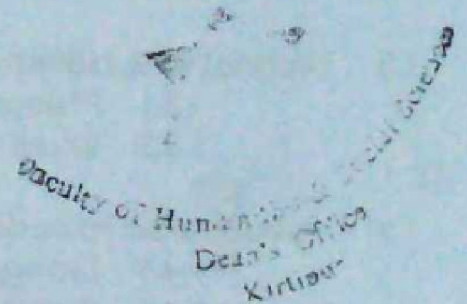 Faculty of Humanities & Social Sciences
Dean's Office
Kirtipur